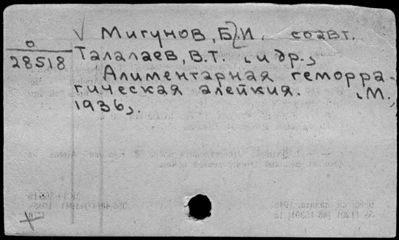 Мигунов, Б.И. соавт.
о
28518
Талалаев, В.Т. и др.,
Алиментарная геморра-
гическая алейкия. М.,
1936,